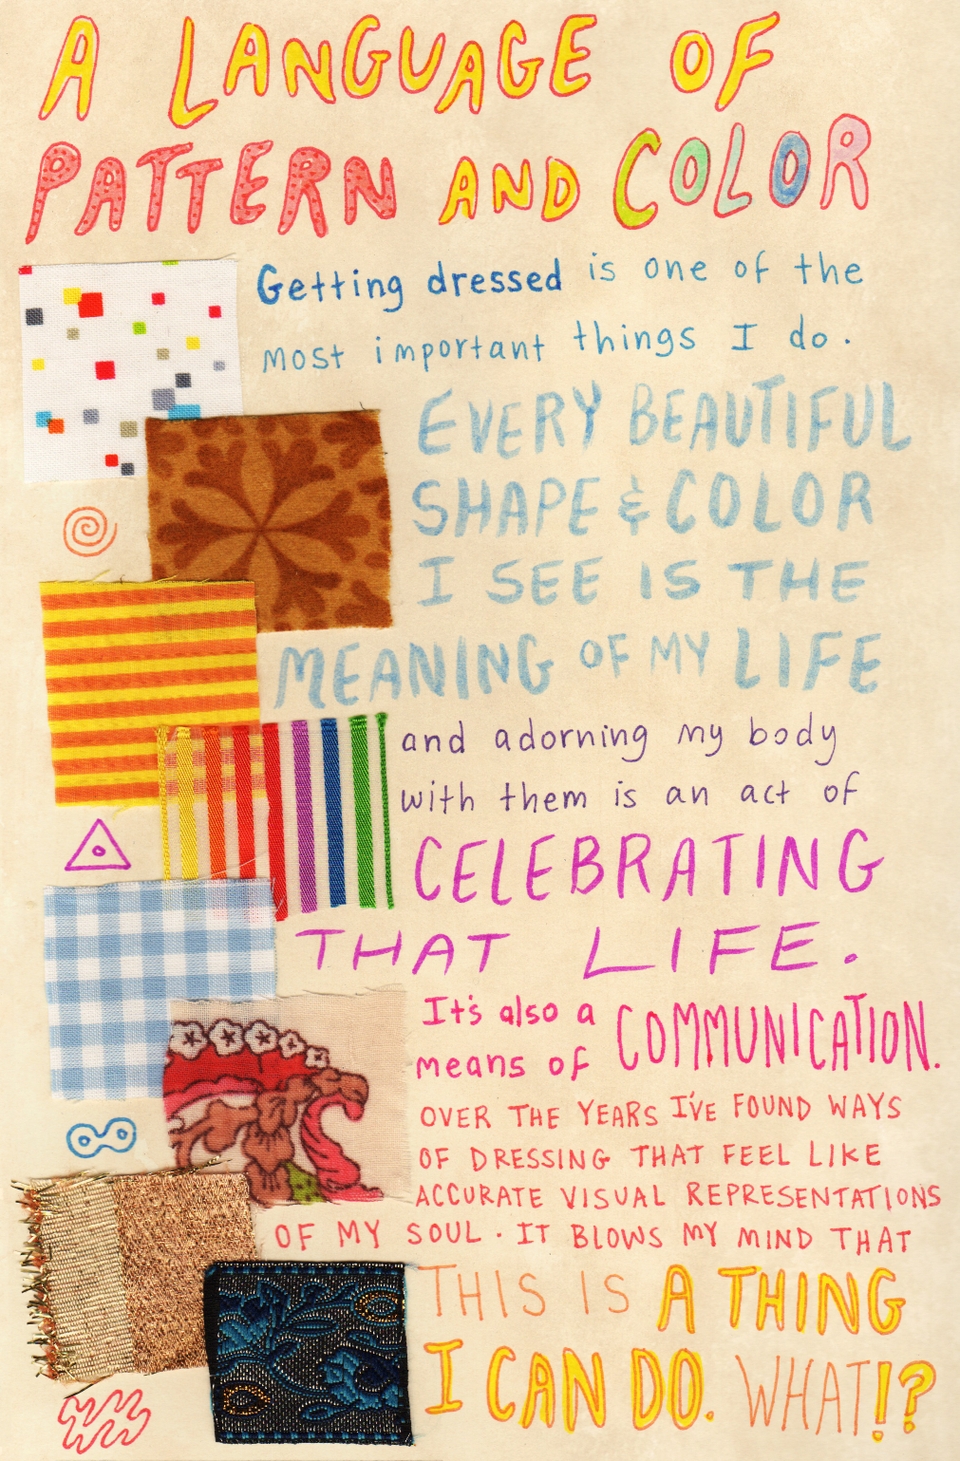 A LANGUAGE OF
PATTERN AND COLOR
Getting dressed is one of the
most important things I do.
EVERY BEAUTIFUL
SHAPE & COLOR
I SEE IS THE
MEANING OF MY LIFE
and adorning my body
with them is an act of
CELEBRATING
THAT LIFE.
It's also a COMMUNICATION.
means of
OVER THE YEARS I'VE FOUND WAYS
OF DRESSING THAT FEEL LIKE
ACCURATE VISUAL REPRESENTATIONS
OF MY SOUL. IT BLOWS MY MIND THAT
THIS IS A THING
I CAN DO. WHAT!?